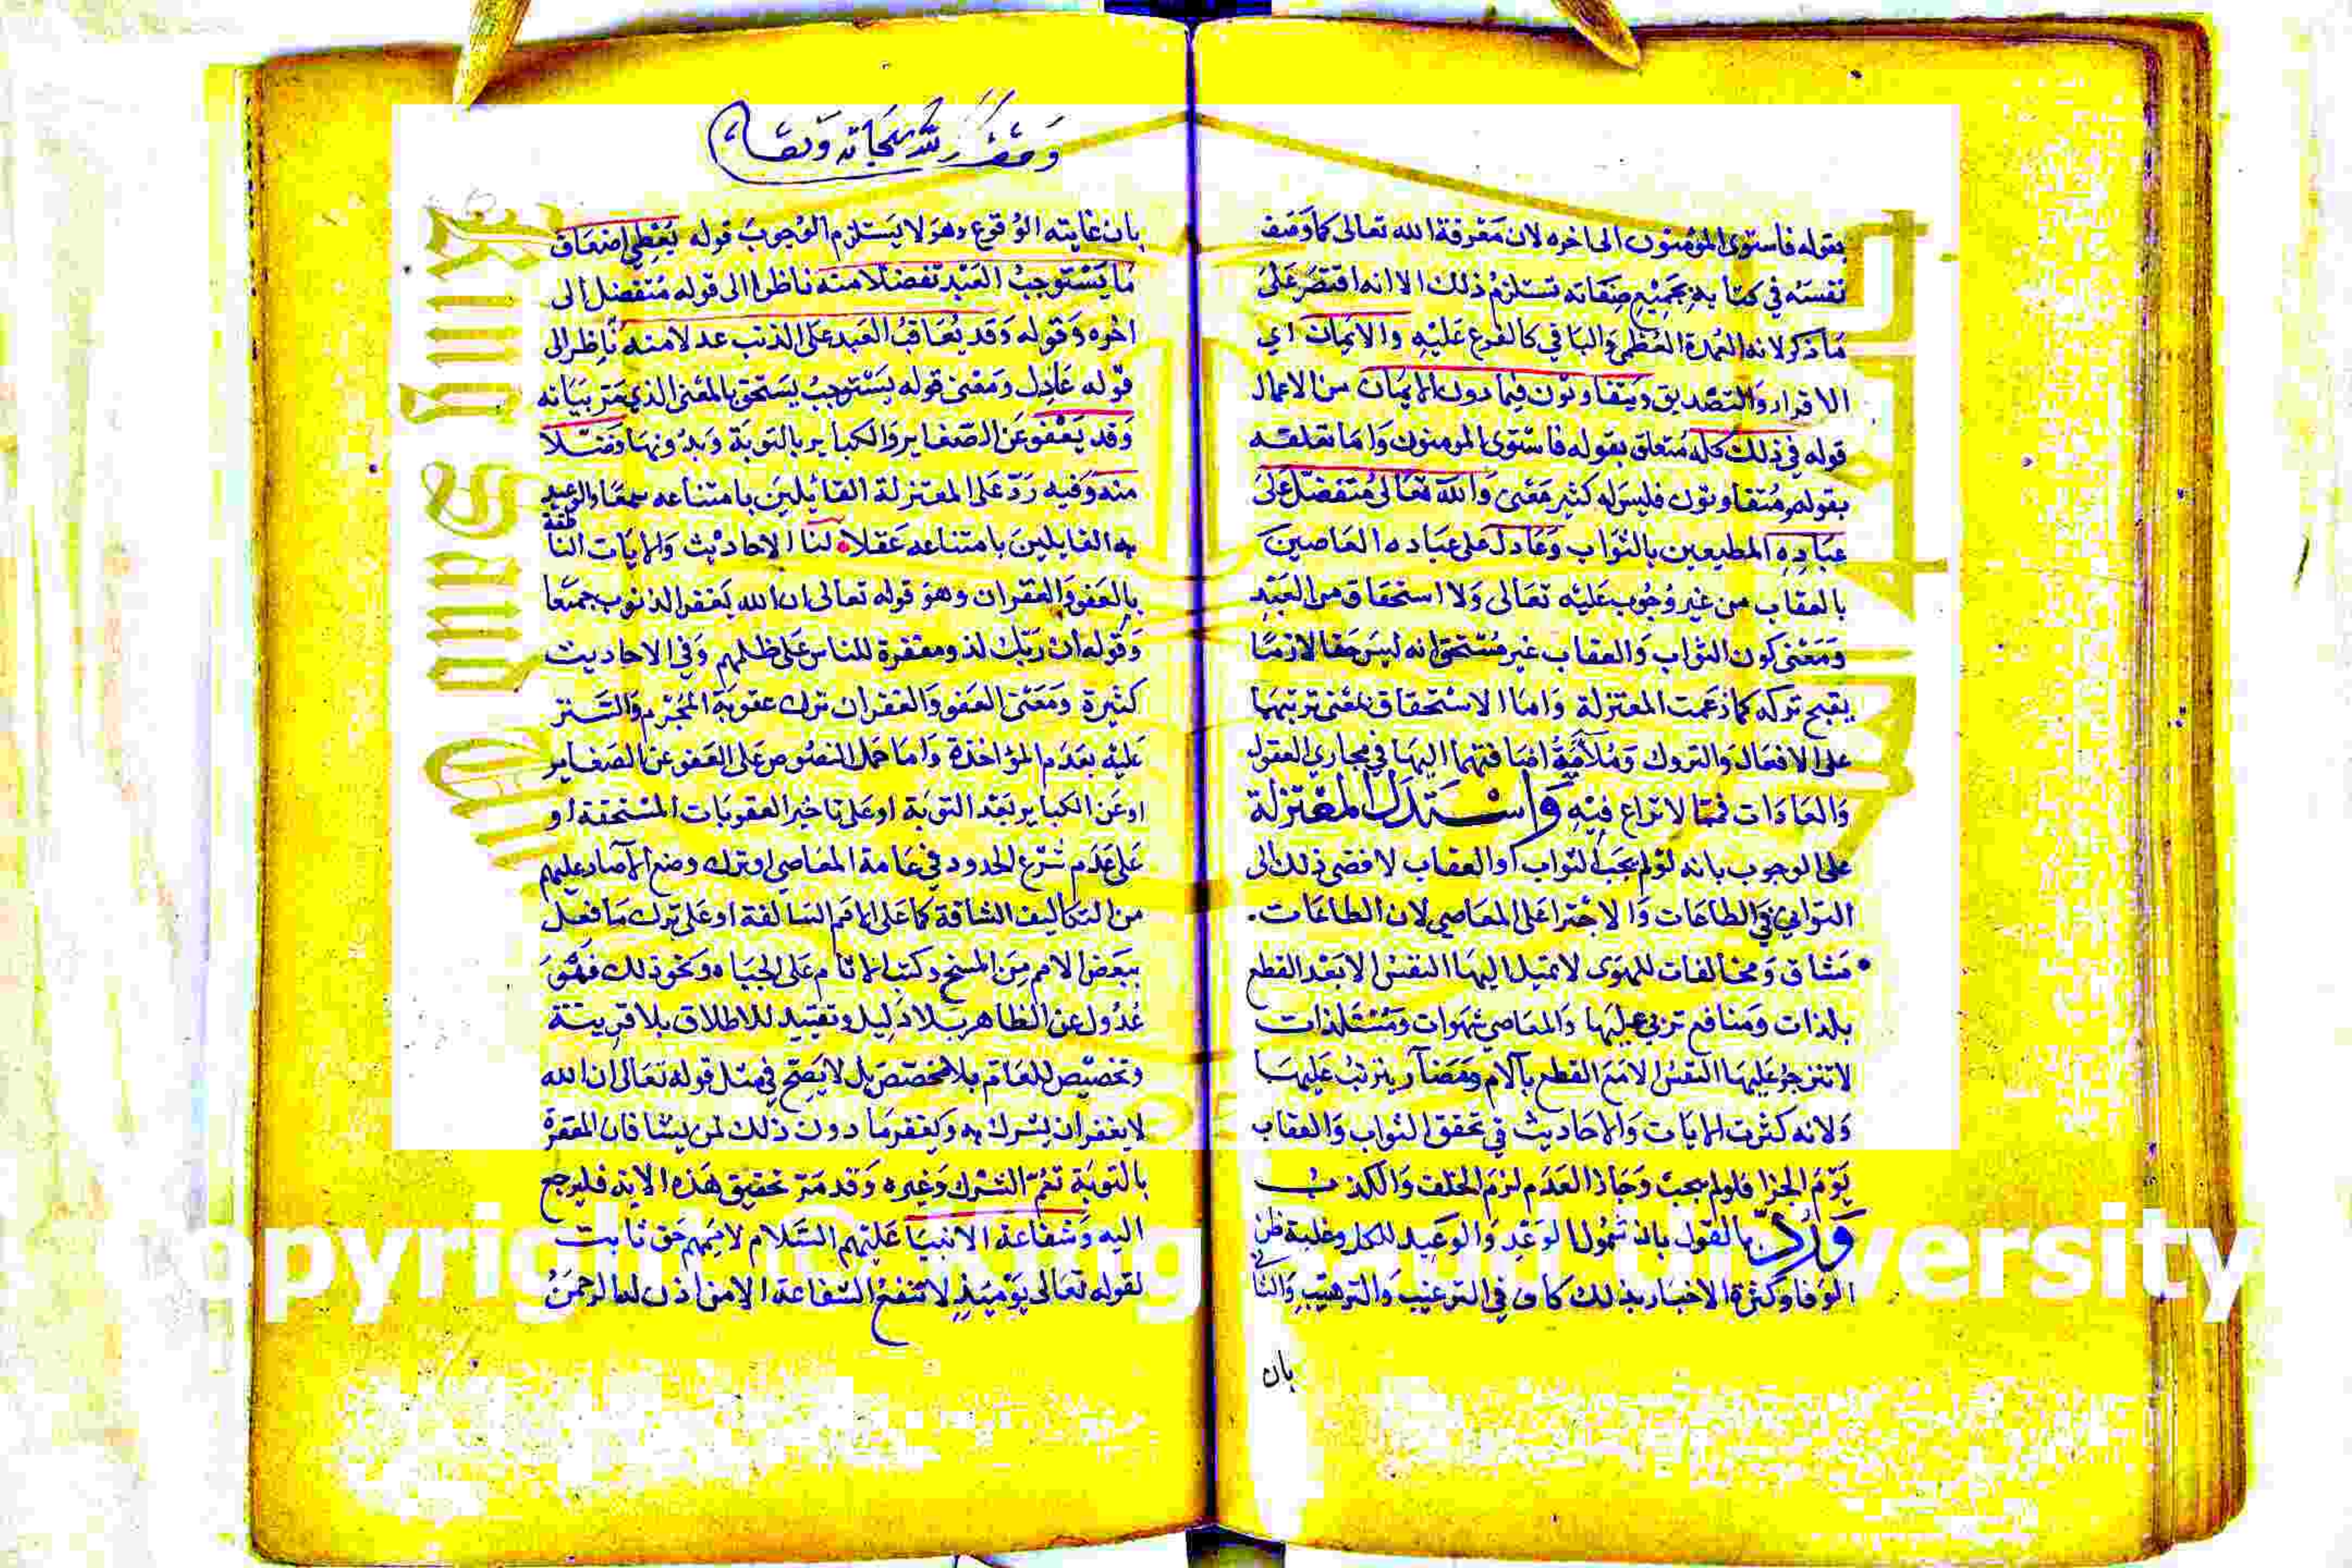 بقوله فاستوى المؤمنون الى اخره لان معرفة الله تعالى كما وصف
نفسه في كتابه بجميع صفاته تستلزم ذلك الا انه اقتصر على
ما ذكر لانه العمدة العظمى والباقي كالفرع عليه والايمان اي
الاقرار والتصديق ويتفاوتون فيما دون الايمان من الاعمال
قوله في ذلك كله متعلق بقوله فاستوى المومنون واما تعلقه
بقوله متفاوتون فليس له كثير معنى والله تعالى متفضل على
عباده المطيعين بالثواب وعادل على عباده العاصين
بالعقاب من غير وجوب عليه تعالى ولا استحقاق من العبد
ومعنى كون الثواب والعقاب غير مستحق انه ليس حقا لازما
يقبح تركه كما زعمت المعتزلة واما الاستحقاق بمعنى ترتبهما
على الافعال والتروك وملاءمة اضافتهما اليها في مجاري العقول
والعادات فمما لا نزاع فيه واستدل المعتزلة
على الوجوب بانه لو لم يجب الثواب او العقاب لافضى ذلك الى
التواني في الطاعات والاجترا على المعاصي لان الطاعات
مشاق ومخالفات للهوى لا تميل اليها النفس الا بعد القطع
بلذات ومنافع تربي عليها والمعاصي شهوات ومستلذات
لا تنزجر عليها النفس الا مع القطع بآلام ومضآر يترتب عليها
ولانه كثرت الايات والاحاديث في تحقق الثواب والعقاب
يوم الجزا فلو لم يجب وجاز العدم لزم الخلف والكذب
ورد بالقول بان شمول الوعد والوعيد للكل وغلبة ظن
الوفا وكثرة الاخبار بذلك كاف في الترغيب والترهيب والثاني
بان
وقف لله سبحانه وتعالى
بان غايته الوقوع وهو لا يستلزم الوجوب قوله يعطي اضعاف
ما يستوجب العبد تفضلا منه ناظرا الى قوله متفضل الى
اخره وقوله وقد يعاقب العبد على الذنب عدلا منه ناظر الى
قوله عادل ومعنى قوله يستوجب يستحق بالمعنى الذي مر بيانه
وقد يعفو عن الصغاير والكباير بالتوبة وبدونها فضلا
منه وفيه رد على المعتزلة القائيلين بامتناعه سمعا والوعيد
يه القايلين بامتناعه عقلا لنا الاحاديث والايات الناطقة
بالعفو والغفران وهو قوله تعالى ان الله يغفر الذنوب جميعا
وقوله ان ربك لذو مغفرة للناس على ظلمهم وفي الاحاديث
كثيرة ومعنى العفو والغفران ترك عقوبة المجرم والستر
عليه بعدم المؤاخذة واما حمل النصوص على العفو عن الصغاير
او عن الكباير بعد التوبة او على تاخير العقوبات المستحقة او
على عدم شرع الحدود في عامة المعاصي او ترك وضع الآصار عليهم
من التكاليف الشاقة كما على الامم السالفة او على ترك ما فعل
ببعض الامم من المسخ وكتب الاثام على الجباه ونحو ذلك فهو
عدول عن الظاهر بلا دليل وتقييد للاطلاق بلا قرينة
وتخصيص للعام بلا مخصص بل لا يصح في مثل قوله تعالى ان الله
لا يغفر ان يشرك به ويغفر ما دون ذلك لمن يشا فان المغفرة
بالتوبة تعم الشرك وغيره وقد مر تحقيق هذه الاية فليرجع
اليه وشفاعة الانبيا عليهم السلام لاممهم حق ثابت
لقوله تعالى يوميذ لا تنفع الشفاعة الا من اذن له الرحمن
Copyright © King Saud University